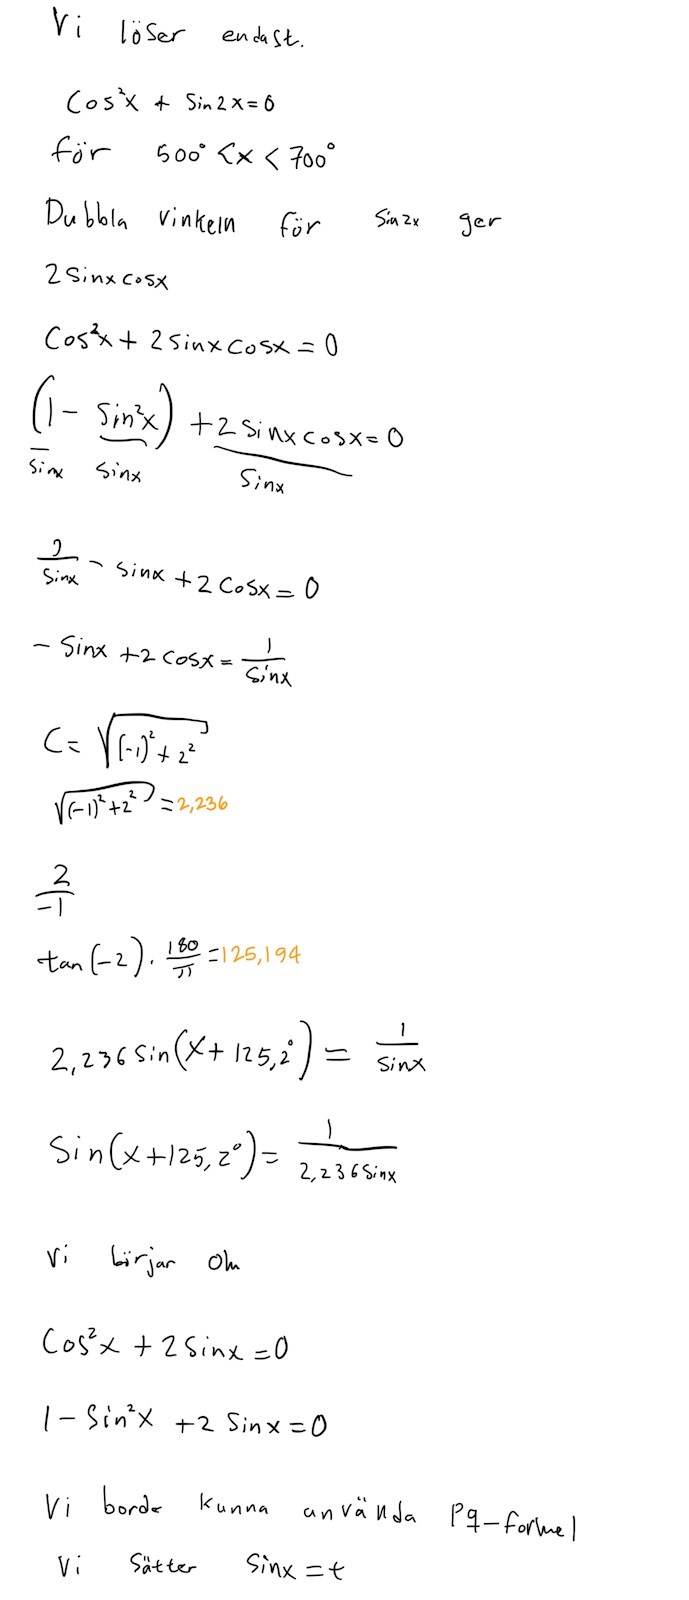 Vi löser endast.
Cos²x + Sin2x=0
för 500° <x < 700°
Dubbla vinkeln för Sin2x ger
2Sinx cosx
Cos²x + 2Sinx Cosx = 0
(1 - Sin²x) + 2Sinx cosx=0
Sinx Sinx Sinx
1/Sinx - Sinx + 2Cosx = 0
- Sinx +2 cosx = 1/Sinx
C= √((-1)² + 2²)
√((-1)²+2²) = 2,236
2/-1
tan(-2) · 180/π = 125,194
2,236 Sin(x+ 125,2°) = 1/Sinx
Sin(x+125,2°) = 1/2,236Sinx
Vi börjar om
Cos²x + 2Sinx =0
1 - Sin²x +2 Sinx=0
Vi borde kunna använda Pq-formel
Vi Sätter Sinx = t